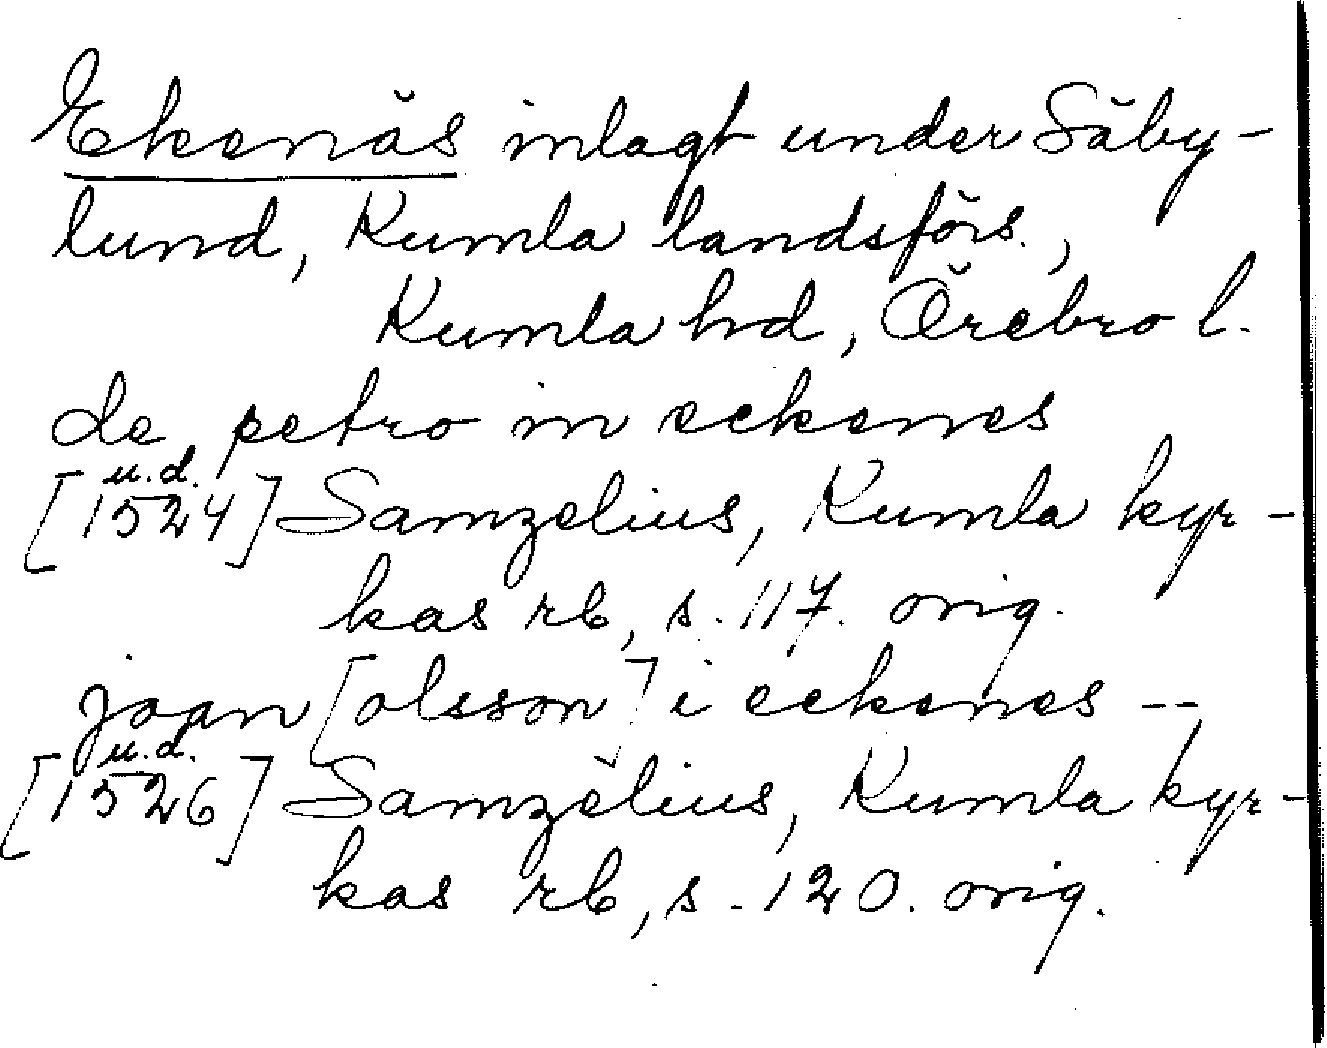 Ekenäs inlagt under Säby-
lund, Kumla landsförs.,
Kumla hd, Örebro l.
de petro in eckenes
u.d.
[1524] Samzelius, Kumla kyr-
kas rb, s. 117. orig.
joan [olsson] i eckenes --
u.d.
[1526] Samzelius, Kumla kyr-
kas rb, s. 120. orig.